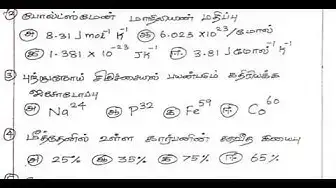 ② போல்ட்ஸ்மேன் மாறிலியின் மதிப்பு
அ 8.31 J mol⁻¹ K⁻¹ ஆ 6.023 X10²³/மோல்
இ 1.381 X 10⁻²³ JK⁻¹ ஈ 3.81 J மோல்⁻¹
③ புற்றுநோய் சிகிச்சையில் பயன்படும் கதிரியக்க
ஐசோடோப்பு
அ Na²⁴ ஆ P³² இ Fe⁵⁹ ஈ Co⁶⁰
④ மீத்தேனில் உள்ள கார்பனின் சதவீத இயைபு
அ 25% ஆ 35% இ 75% ஈ 65%